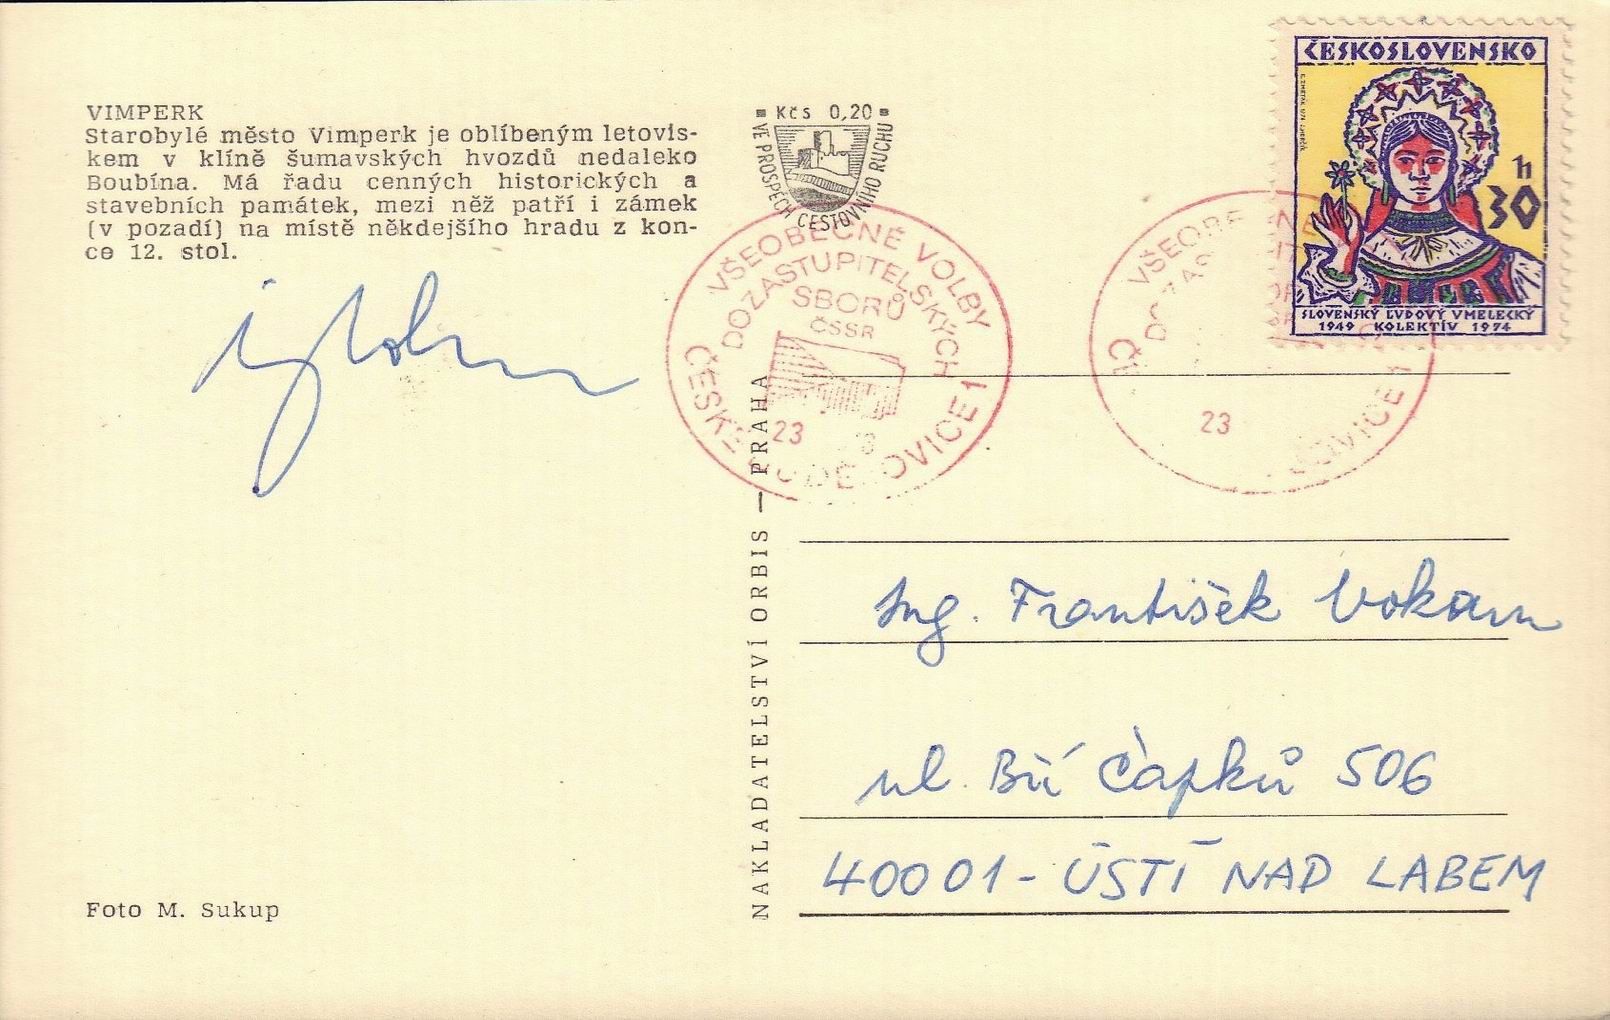 VIMPERK
Starobylé město Vimperk je oblíbeným letovis-
kem v klíně šumavských hvozdů nedaleko
Boubína. Má řadu cenných historických a
stavebních památek, mezi něž patří i zámek
(v pozadí) na místě někdejšího hradu z kon-
ce 12. stol.
Foto M. Sukup
Kčs 0,20
VE PROSPĚCH CESTOVNÍHO RUCHU
VŠEOBECNÉ VOLBY
DO ZASTUPITELSKÝCH
SBORŮ
ČSSR
23
ČESKÉ BUDĚJOVICE 1
NAKLADATELSTVÍ ORBIS — PRAHA
ČESKOSLOVENSKO
h
30
SLOVENSKÝ ĽUDOVÝ UMELECKÝ
1949 KOLEKTÍV 1974
23
OVICE 1
Ing. František Vokoun
ul. Bří Čapků 506
40001 - ÚSTÍ NAD LABEM